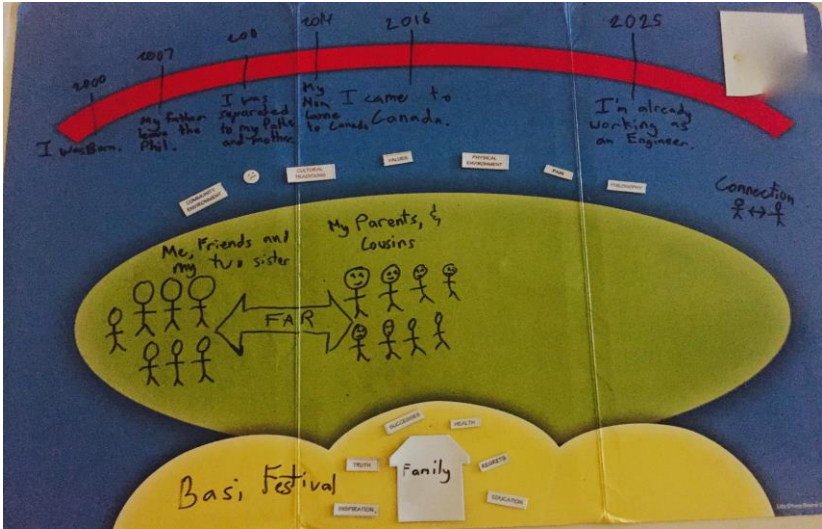 2000
2007
2011
2014
2016
2025
I was Born.
My Father
leave the
Phil.
I was
separated
to my Father
and mother.
My
Mom
came
to Canada
I came to
Canada.
I'm already
working as
an Engineer.
COMMUNITY
ENVIRONMENT
CULTURAL
TRADITIONS
VALUES
PHYSICAL
ENVIRONMENT
PHILOSOPHY
Connection
Me, Friends and
my two sister
My Parents, &
Cousins
FAR
SUCCESSES
HEALTH
TRUTH
Family
REGRETS
Basi Festival
INSPIRATION
EDUCATION